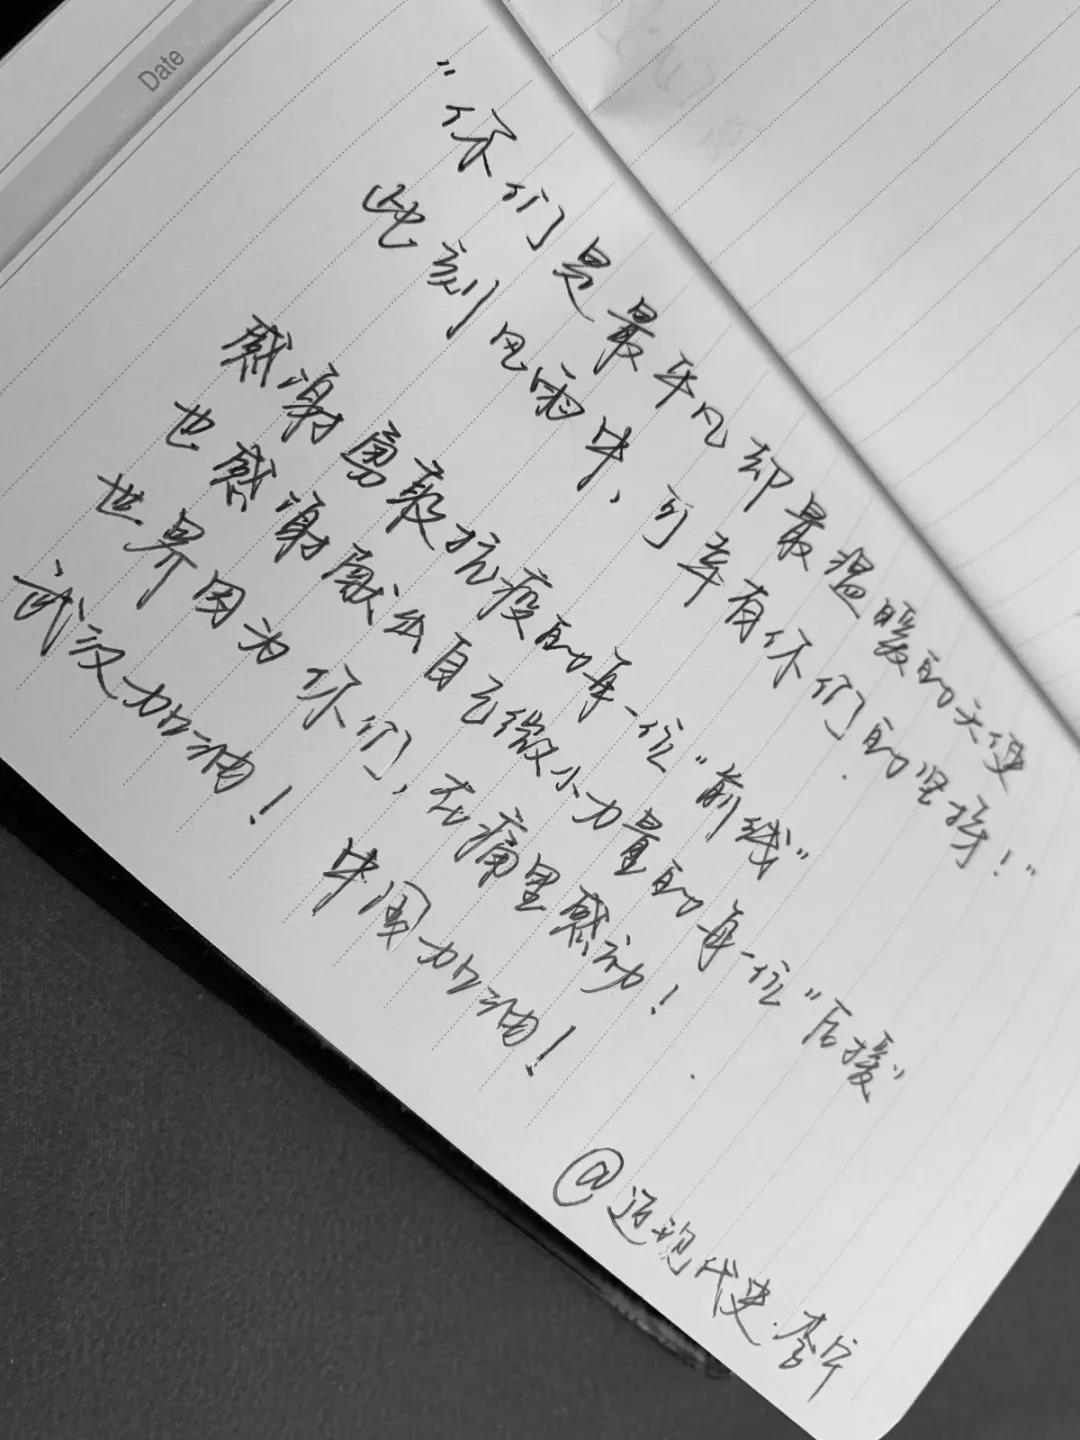 Date
"你们是最平凡却最温暖的天使
此刻风雨中，可幸有你们的坚持！"
感谢勇敢抗疫的每一位"前线"
也感谢献出自己微小力量的每一位"后援"
世界因为你们，在痛里感动！
武汉加油！
中国加油！
@近现代史·李